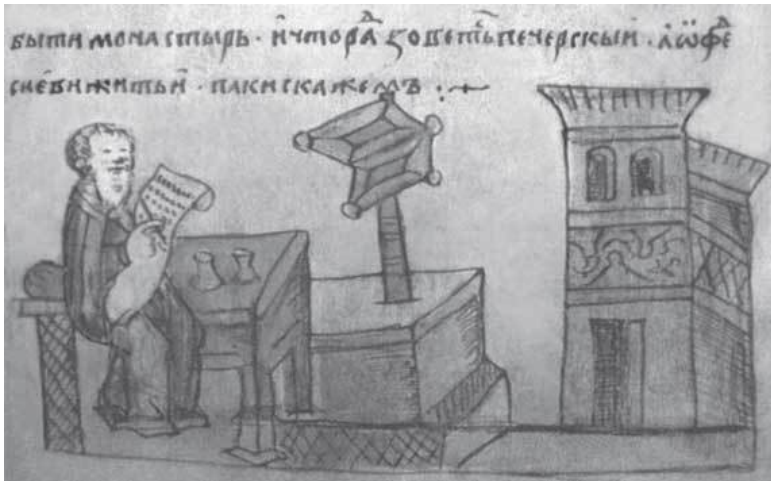 быти монастырь · и҆ чтораⷣ зоветⷭь печерскыи҆ · аѡфеⷣ
сиеви житьи҆ · паки скажемъ :~